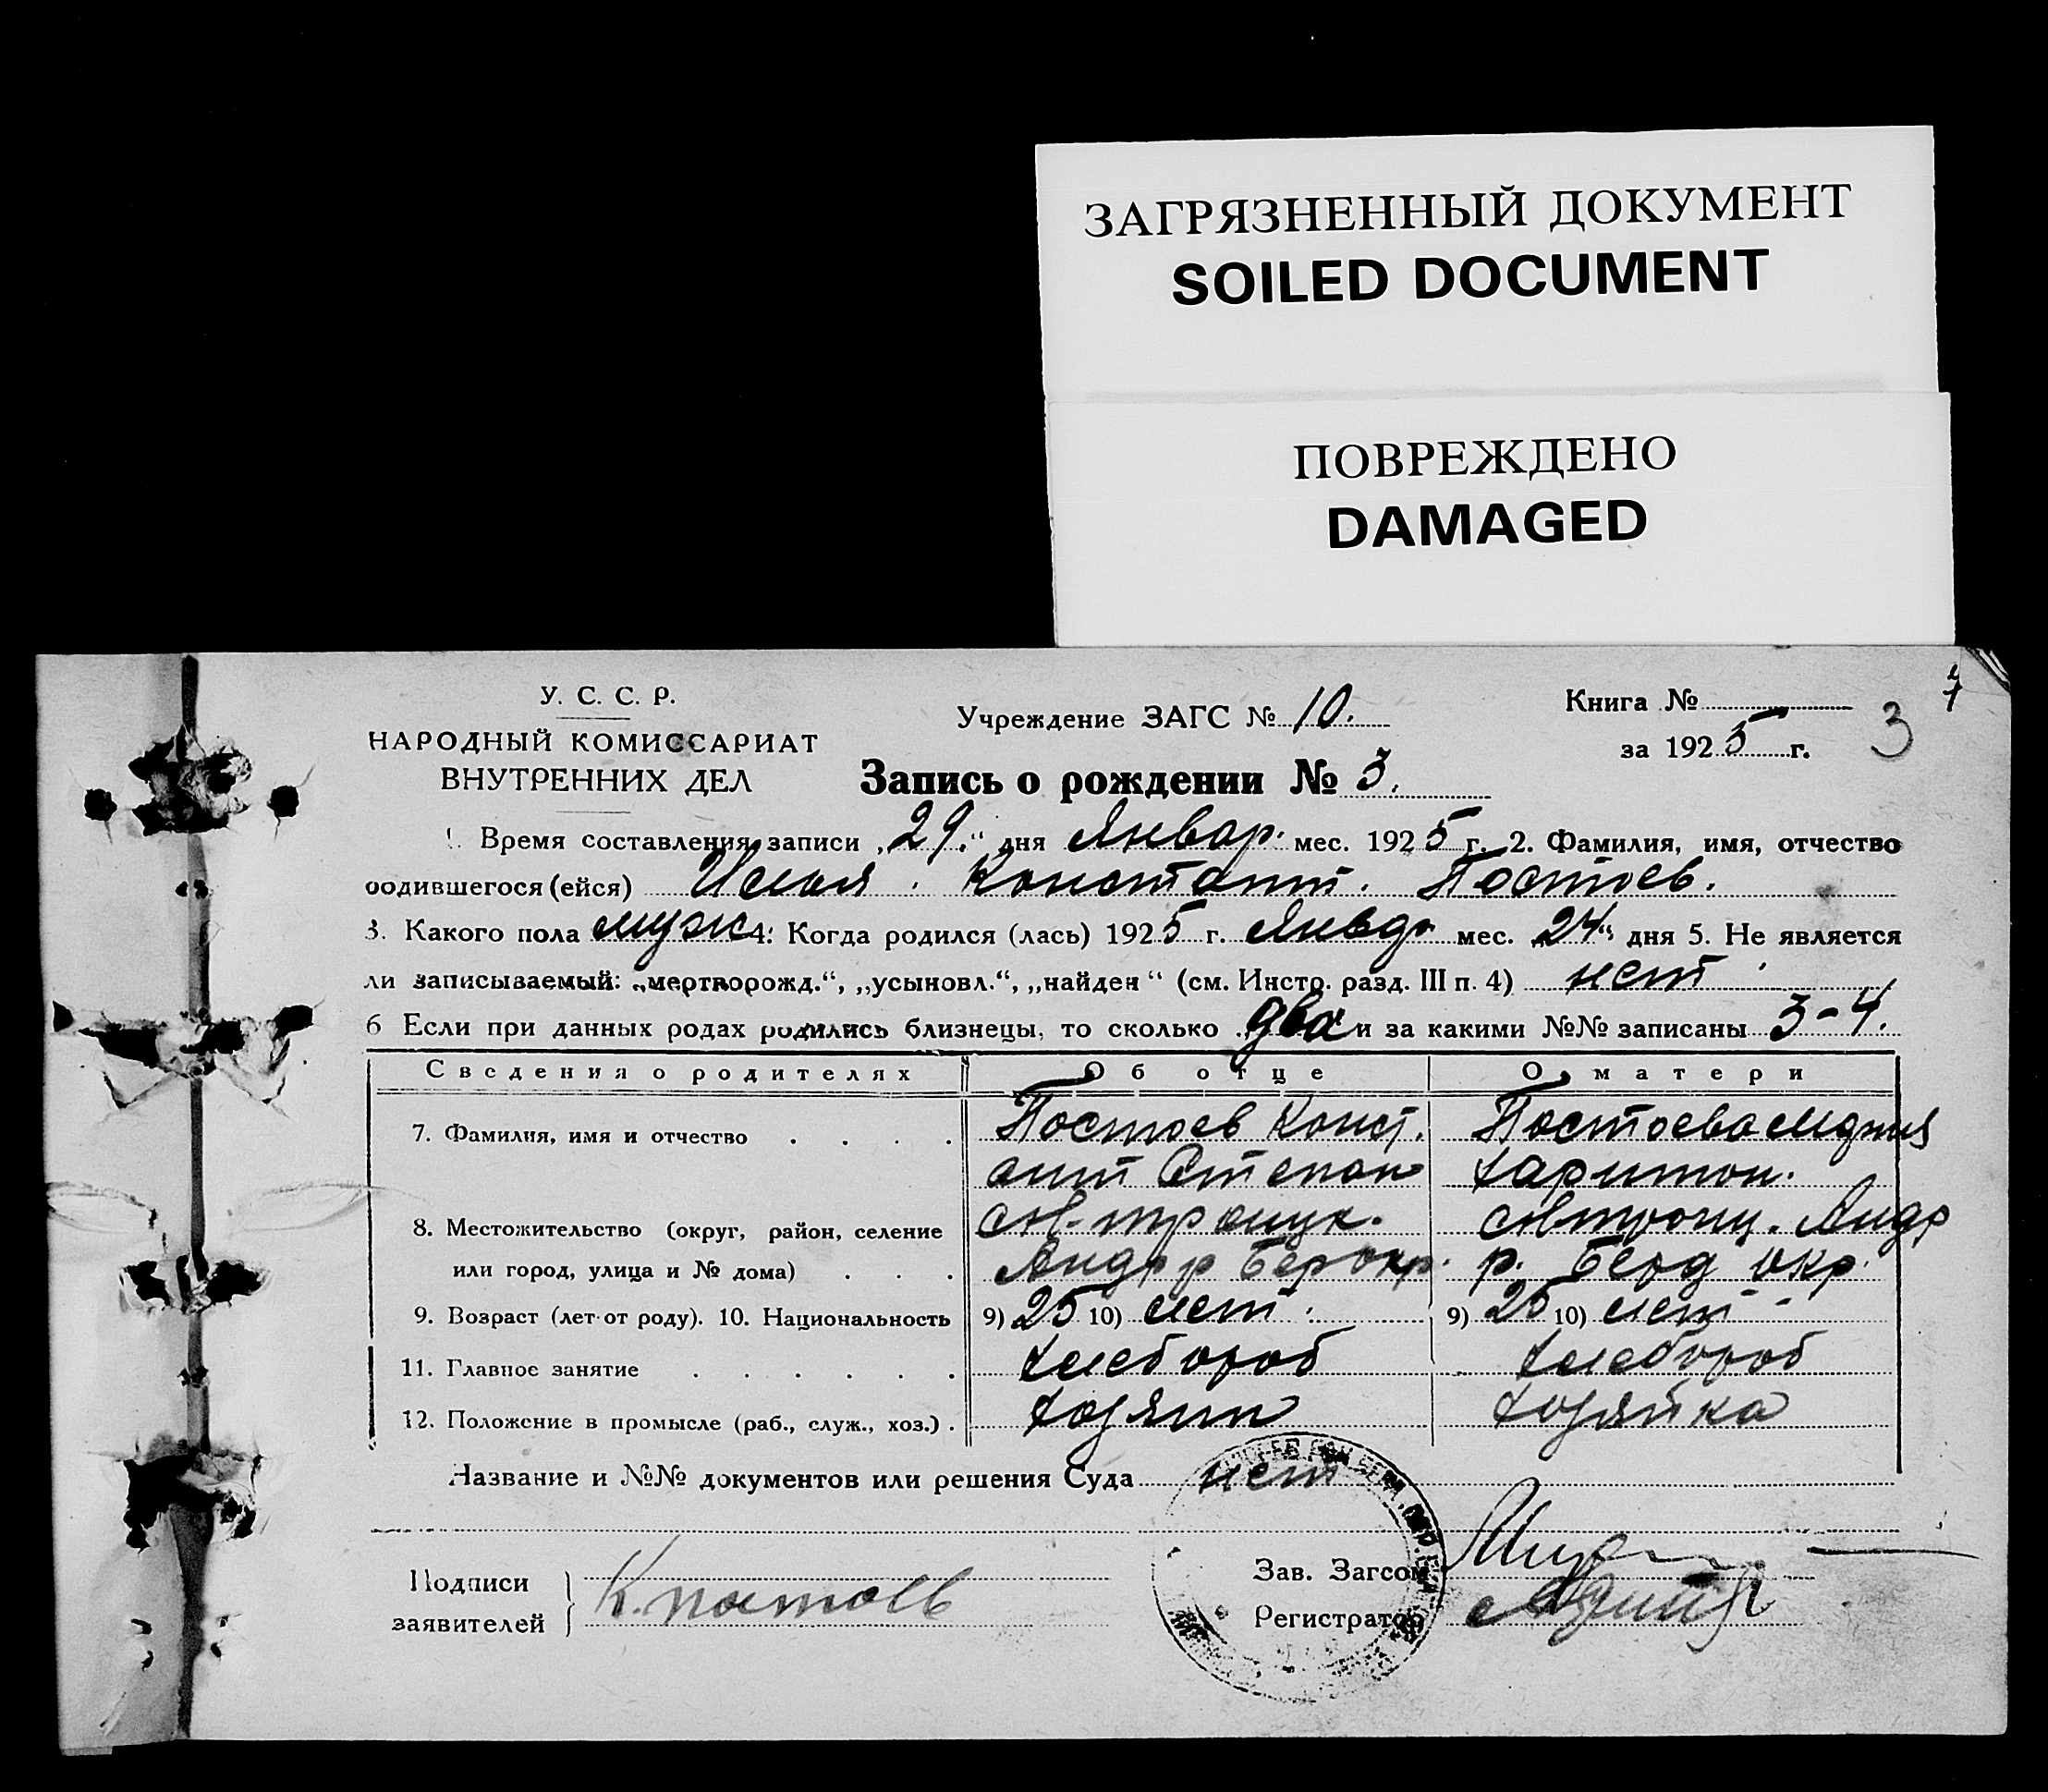 ЗАГРЯЗНЕННЫЙ ДОКУМЕНТ
SOILED DOCUMENT
ПОВРЕЖДЕНО
DAMAGED
У. С. С. Р.
НАРОДНЫЙ КОМИССАРИАТ
ВНУТРЕННИХ ДЕЛ
Учреждение ЗАГС № 10.
Книга №
за 1925 г. 3
Запись о рождении № 3.
1. Время составления записи „29." дня Январ. мес. 1925 г. 2. Фамилия, имя, отчество
родившегося (ейся) Илья. Константт. Постоев.
3. Какого пола муж 4. Когда родился (лась) 1925 г. Январ мес. „24" дня 5. Не является
ли записываемый: „мертворожд.", „усыновл.", „найден" (см. Инстр. разд. III п. 4) нет
6 Если при данных родах родились близнецы, то сколько два и за какими №№ записаны 3-4.
Сведения о родителях Об отце О матери
7. Фамилия, имя и отчество Постоев Конст. Постоева
ант Степан Харитон.
8. Местожительство (округ, район, селение
или город, улица и № дома) р. Берд окр.
9. Возраст (лет от роду). 10. Национальность 9) 25 10) 9) 25 10)
11. Главное занятие хлебороб хлебороб
12. Положение в промысле (раб., служ., хоз.) хозяин хозяйка
Название и №№ документов или решения Суда нет
Подписи заявителей К. постоев
Зав. Загсом
Регистратор